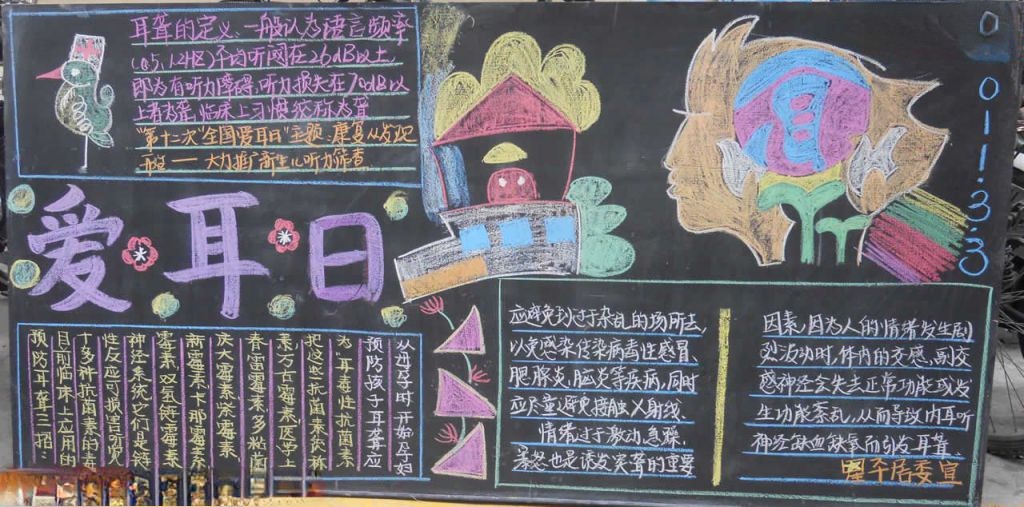 耳聋的定义、一般认为语言频率
(0.5,1,2HZ)平均听阈在26dB以上,
即为有听力障碍,听力损失在70dB以
上者为聋,临床上习惯统称为聋
"第十二次"全国爱耳日"主题、康复从发现
开始——大力推广新生儿听力筛查
爱耳日
0 0 1 1 . 3 . 3
从母孕时开始,孕妇
预防孩子耳聋应
为耳毒性抗菌素
把这些抗菌素统称
素、万古霉素、医学上
春雷霉素、多粘菌
庆大霉素、紫霉素、
新霉素、卡那霉素、
霉素、双氢链霉素、
神经系统,它们是:链
性反应,可损害听觉
十多种抗菌素的毒
目前临床上应用的
预防耳聋三招:
应避免到过于杂乱的场所去,
以免感染传染病毒性感冒、
腮腺炎、脑炎等疾病,同时
应尽量避免接触X射线。
情绪过于激动、急躁、
暴怒也是诱发突聋的重要
因素,因为人的情绪发生剧
烈活动时,体内的交感、副交
感神经会失去正常功能或发
生功能紊乱,从而导致内耳听
神经缺血缺氧而引发耳聋。
居委宣